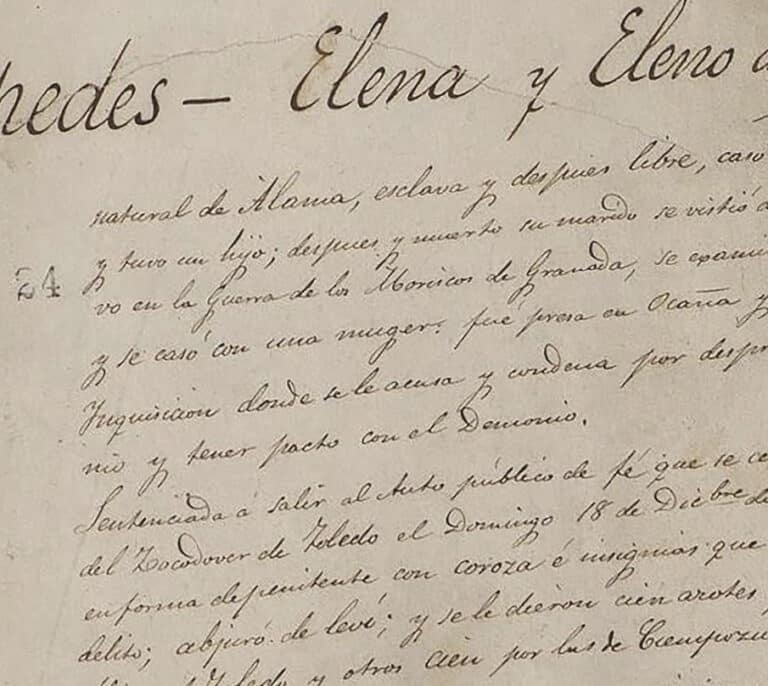 hedes – Elena y Eleno
natural de Alama, esclava y despues libre, casó
y tuvo un hijo; despues y muerto su marido se vistió
vo en la Guerra de los Moriscos de Granada, se exami
24
y se casó con una muger: fue presa en Ocaña y
Ynquisicion donde se le acusa y condena por despr
nio y tener pacto con el Demonio.
Sentenciada á salir al Auto público de fé que se ce
del Zocodover de Toledo el Domingo 18 de Dicbre de
en forma de penitente con coroza é insignias que
delito; abjuró de leví; y se le dieron cien azotes
Toledo y otros cien por las de Ciempozu